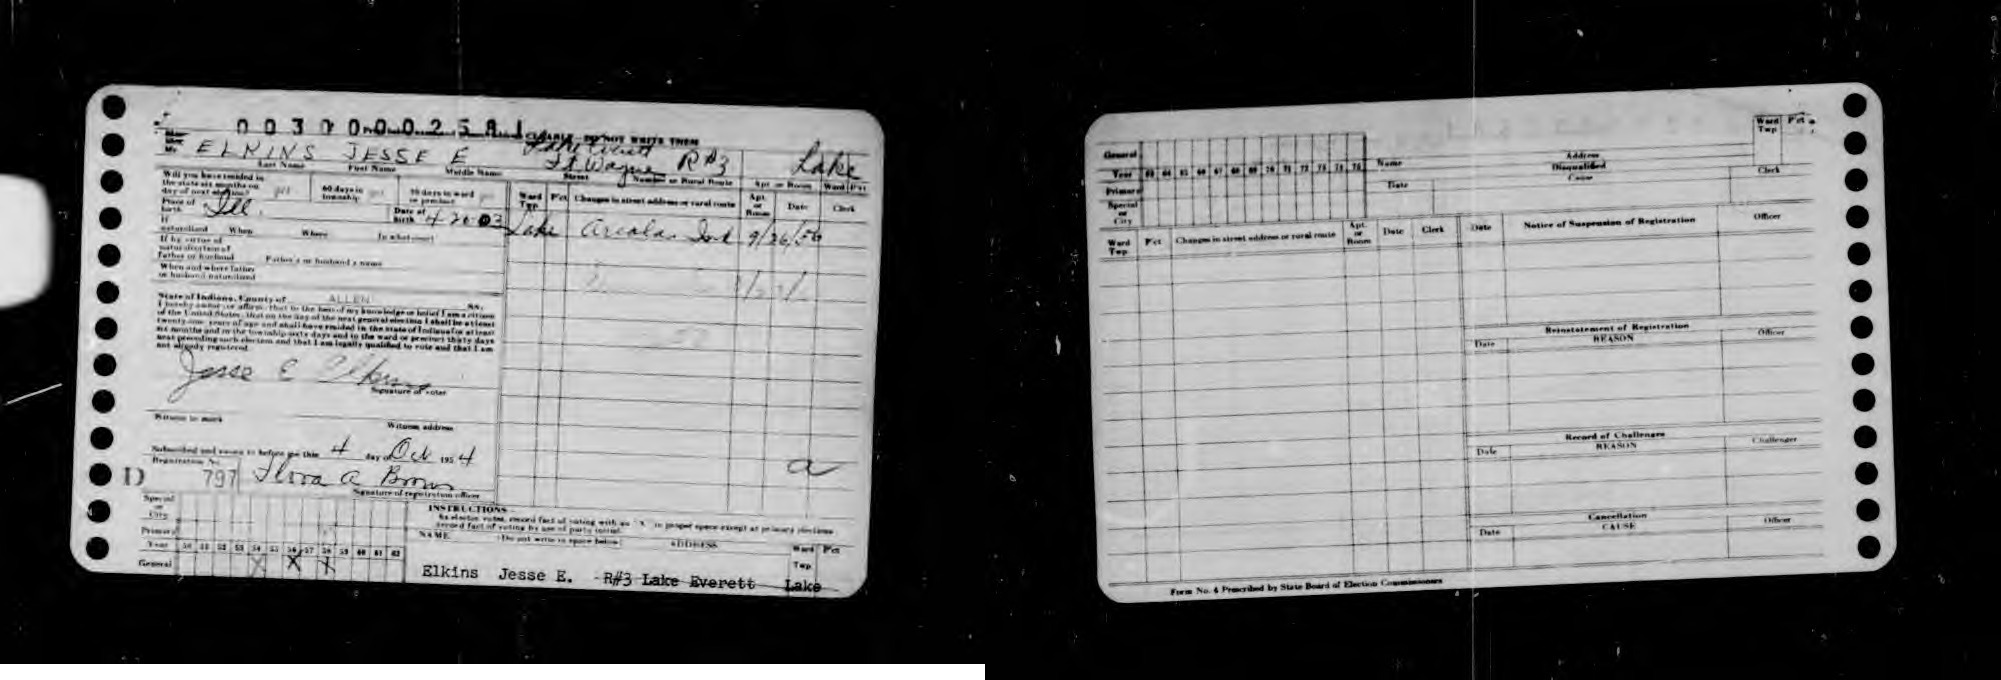 CLEARLY DO NOT WRITE THEM
ELKINS JESSE E Ft. Wayne R#3 Lake
Last Name First Name Middle Name Street Number or Rural Route Apt. or Room Ward P'ct
Will you have resided in
the state six months on
day of next election? yes 60 days in township yes 30 days in ward or precinct yes
Place of birth Ill. Date of birth 4-20-03
If naturalized When Where In what court
If by virtue of
naturalization of
Father or husband Father's or husband's name
When and where father
or husband naturalized
State of Indiana, County of ALLEN SS.
I hereby swear or affirm, that to the best of my knowledge or belief I am a citizen
of the United States, that on the day of the next general election I shall be at least
twenty-one years of age and shall have resided in the state of Indiana for at least
six months and in the township sixty days and in the ward or precinct thirty days
next preceding such election and that I am legally qualified to vote and that I am
not already registered.
Jesse E Elkins
Signature of voter
Witness to mark Witness address
Subscribed and sworn to before me this 4 day of Oct 1954
Registration No.
D 797 Flora A Brown
Signature of registration officer
Ward Twp. P'ct Changes in street address or rural route Apt. or Room Date Clerk
Lake Arcola Ind 9/26/56
a
Special or City
Primary
Year 50 51 52 53 54 55 56 57 58 59 60 61 62
General X X X
INSTRUCTIONS
As elector votes, record fact of voting with an "X" in proper space except at primary elections
record fact of voting by use of party initial.
NAME (Do not write in space below) ADDRESS Ward Twp. P'ct
Elkins Jesse E. R#3 Lake Everett Lake
General
Year 63 64 65 66 67 68 69 70 71 72 73 74 75
Primary
Special or City
Ward Twp P'ct
Name Address
Disqualified
Date Cause Clerk
Ward Twp. P'ct Changes in street address or rural route Apt. or Room Date Clerk
Date Notice of Suspension of Registration Officer
Reinstatement of Registration
Date REASON Officer
Record of Challenges
Date REASON Challenger
Cancellation
Date CAUSE Officer
Form No. 4 Prescribed by State Board of Election Commissioners